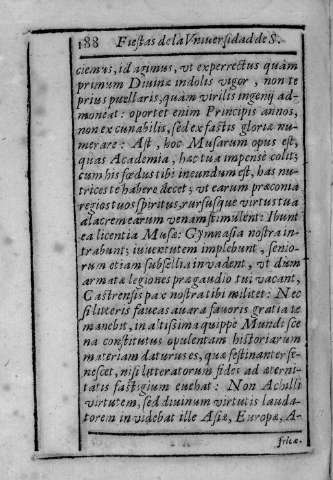 188 Fiestas de la Vniuersidad de S.
ciemus, id agimus, vt experrectus quàm
primum Diuinæ indolis vigor, non te
prius puellaris, quàm virilis ingenij ad-
moneat: oportet enim Principis annos,
non ex cunabilis, sed ex fastis gloriæ nu-
merare: Ast, hoc Musarum opus est,
quas Academia, hæc tua impensè colit;
cum his fœdus tibi ineundum est, has nu-
trices te habere decet; vt earum præconia
regios tuos spiritus, rursusque virtus tua
alacrem earum venam stimulent: Ibunt
ea licentia Musæ: Gymnasia nostra in-
trabunt; iuuentutem implebunt, senio-
rum etiam subsellia inuadent, vt dum
armatæ legiones præ gaudio tui vacant,
Castrensis pax nostra tibi militet: Nec
si litteris faueas auara fauoris gratia te
manebit, in altissima quippe Mundi sce
na constitutus opulentam historiarum
materiam daturus es, quæ festinanter se-
nescet, nisi litteratorum fides ad æterni-
tatis fastigium euehat: Non Achilli
virtutem, sed diuinum virtutis lauda-
torem inuidebat ille Asiæ, Europæ, A-
fricæ.